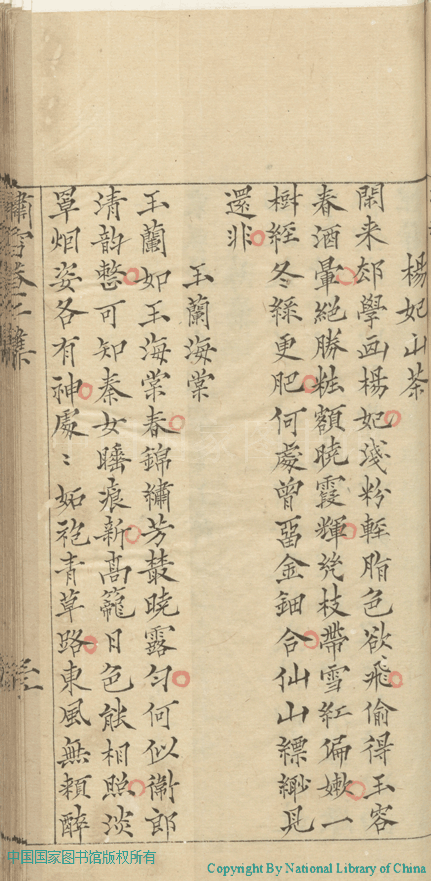 楊妃山茶
閑来却學画楊妃淺粉輕脂色欲飛偷得玉容
春酒暈絕勝粧額曉霞輝幾枝帶雪紅偏嫩一
樹經冬綠更肥何處曾留金鈿合仙山縹緲見
還非
玉蘭海棠
玉蘭如玉海棠春錦繡芳叢曉露匀何似衛郎
清韵憋可知秦女睡痕新高籠月色能相照淡
罩烟姿各有神處〻妬袍青草路東風無賴醉
中国国家图书馆版权所有
Copyright By National Library of China